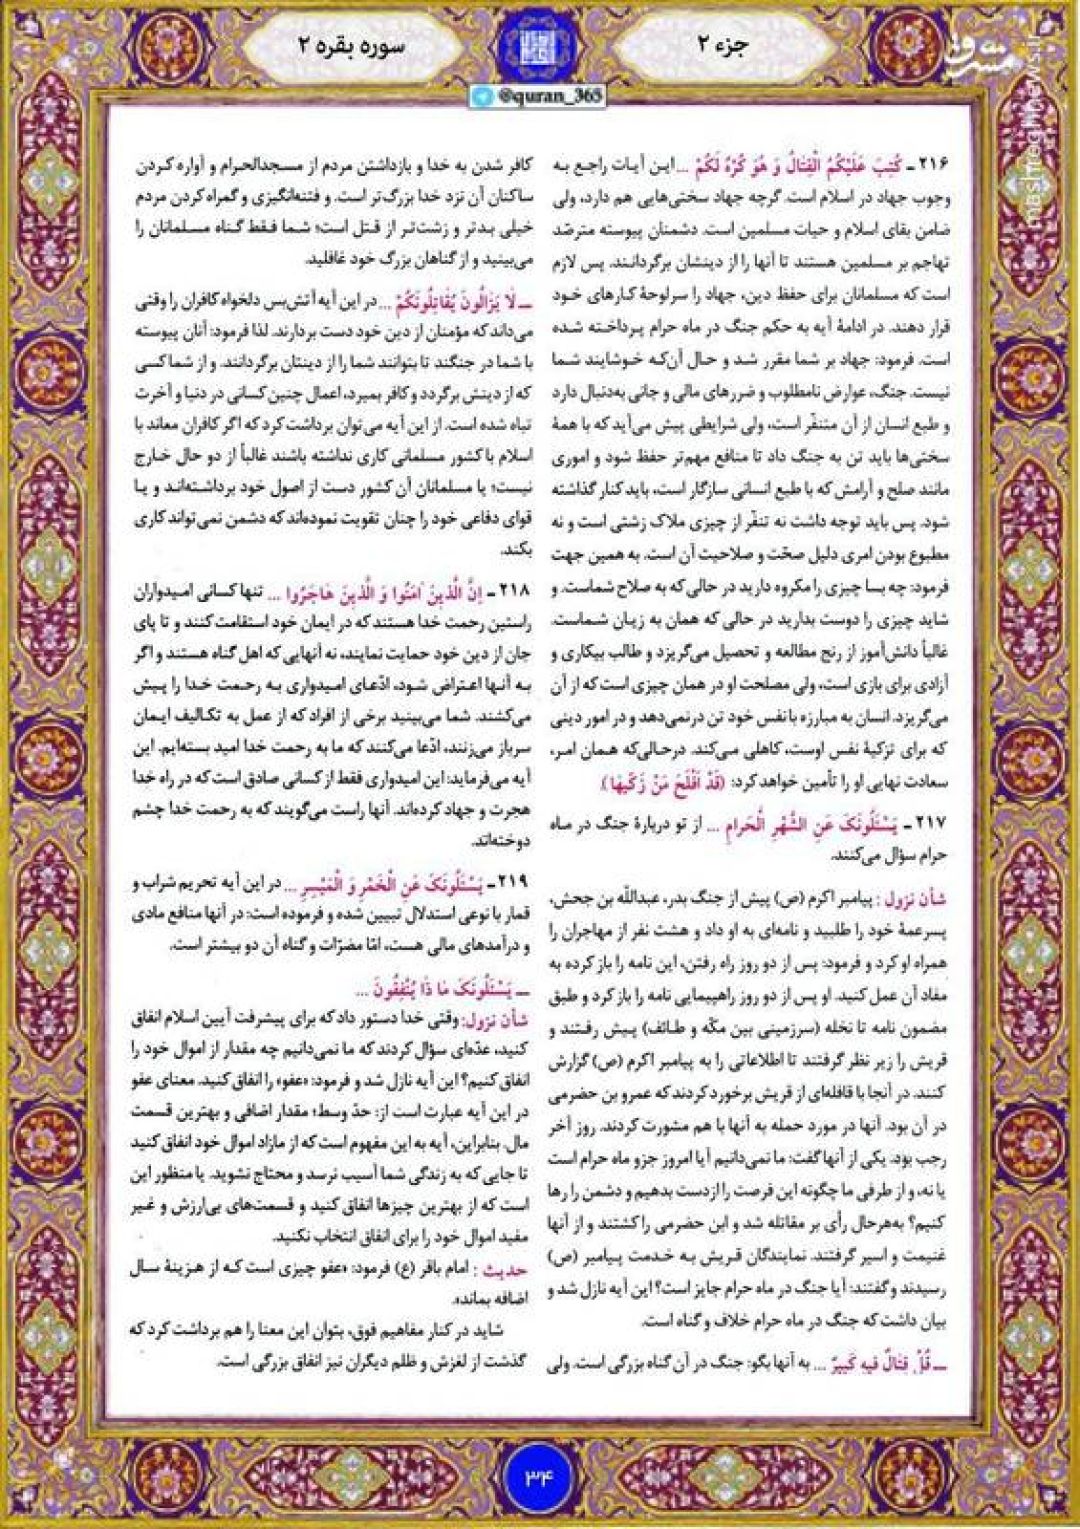 جزء ۲
سوره بقره ۲
@quran_365
مشرق
mashreghnews.ir
۲۱۶ ـ کُتِبَ عَلَیْکُمُ الْقِتالُ وَ هُوَ کُرْهٌ لَکُمْ ... این آیات راجع به
وجوب جهاد در اسلام است. گرچه جهاد سختی‌هایی هم دارد، ولی
ضامن بقای اسلام و حیات مسلمین است. دشمنان پیوسته مترصّد
تهاجم بر مسلمین هستند تا آنها را از دینشان برگردانند. پس لازم
است که مسلمانان برای حفظ دین، جهاد را سرلوحهٔ کارهای خود
قرار دهند. در ادامهٔ آیه به حکم جنگ در ماه حرام پرداخته شده
است. فرمود: جهاد بر شما مقرر شد و حال آن‌که خوشایند شما
نیست. جنگ، عوارض نامطلوب و ضررهای مالی و جانی به‌دنبال دارد
و طبع انسان از آن متنفّر است، ولی شرایطی پیش می‌آید که با همهٔ
سختی‌ها باید تن به جنگ داد تا منافع مهم‌تر حفظ شود و اموری
مانند صلح و آرامش که با طبع انسانی سازگار است، باید کنار گذاشته
شود. پس باید توجه داشت نه تنفّر از چیزی ملاک زشتی است و نه
مطبوع بودن امری دلیل صحّت و صلاحیت آن است. به همین جهت
فرمود: چه بسا چیزی را مکروه دارید در حالی که به صلاح شماست. و
شاید چیزی را دوست بدارید در حالی که همان به زیان شماست.
غالباً دانش‌آموز از رنج مطالعه و تحصیل می‌گریزد و طالب بیکاری و
آزادی برای بازی است، ولی مصلحت او در همان چیزی است که از آن
می‌گریزد. انسان به مبارزه با نفس خود تن درنمی‌دهد و در امور دینی
که برای تزکیهٔ نفس اوست، کاهلی می‌کند. درحالی‌که همان امر،
سعادت نهایی او را تأمین خواهد کرد: (قَدْ اَفْلَحَ مَنْ زَکّیها)
۲۱۷ ـ یَسْئَلُونَکَ عَنِ الشَّهْرِ الْحَرامِ ... از تو دربارهٔ جنگ در ماه
حرام سؤال می‌کنند.
شأن نزول : پیامبر اکرم (ص) پیش از جنگ بدر، عبدالله بن جحش،
پسرعمهٔ خود را طلبید و نامه‌ای به او داد و هشت نفر از مهاجران را
همراه او کرد و فرمود: پس از دو روز راه رفتن، این نامه را باز کرده به
مفاد آن عمل کنید. او پس از دو روز راهپیمایی نامه را باز کرد و طبق
مضمون نامه تا نخله (سرزمینی بین مکّه و طائف) پیش رفتند و
قریش را زیر نظر گرفتند تا اطلاعاتی را به پیامبر اکرم (ص) گزارش
کنند. در آنجا با قافله‌ای از قریش برخورد کردند که عمرو بن حضرمی
در آن بود. آنها در مورد حمله به آنها با هم مشورت کردند. روز آخر
رجب بود. یکی از آنها گفت: ما نمی‌دانیم آیا امروز جزو ماه حرام است
یا نه، و از طرفی ما چگونه این فرصت را ازدست بدهیم و دشمن را رها
کنیم؟ به‌هرحال رأی بر مقاتله شد و ابن حضرمی را کشتند و از آنها
غنیمت و اسیر گرفتند. نمایندگان قریش به خدمت پیامبر (ص)
رسیدند و گفتند: آیا جنگ در ماه حرام جایز است؟ این آیه نازل شد و
بیان داشت که جنگ در ماه حرام خلاف و گناه است.
ـ قُلْ قِتالٌ فیهِ کَبیرٌ ... به آنها بگو: جنگ در آن گناه بزرگی است. ولی
کافر شدن به خدا و بازداشتن مردم از مسجدالحرام و آواره کردن
ساکنان آن نزد خدا بزرگ‌تر است. و فتنه‌انگیزی و گمراه کردن مردم
خیلی بدتر و زشت‌تر از قتل است؛ شما فقط گناه مسلمانان را
می‌بینید و از گناهان بزرگ خود غافلید.
ـ لا یَزالُونَ یُقاتِلُونَکُمْ ... در این آیه آتش‌بس دلخواه کافران را وقتی
می‌داند که مؤمنان از دین خود دست بردارند. لذا فرمود: آنان پیوسته
با شما در جنگند تا بتوانند شما را از دینتان برگردانند. و از شما کسی
که از دینش برگردد و کافر بمیرد، اعمال چنین کسانی در دنیا و آخرت
تباه شده است. از این آیه می‌توان برداشت کرد که اگر کافران معاند با
اسلام با کشور مسلمانی کاری نداشته باشند غالباً از دو حال خارج
نیست؛ یا مسلمانان آن کشور دست از اصول خود برداشته‌اند و یا
قوای دفاعی خود را چنان تقویت نموده‌اند که دشمن نمی‌تواند کاری
بکند.
۲۱۸ ـ اِنَّ الَّذینَ امَنُوا وَ الَّذینَ هاجَرُوا ... تنها کسانی امیدواران
راستین رحمت خدا هستند که در ایمان خود استقامت کنند و تا پای
جان از دین خود حمایت نمایند، نه آنهایی که اهل گناه هستند و اگر
به آنها اعتراض شود، ادّعای امیدواری به رحمت خدا را پیش
می‌کشند. شما می‌بینید برخی از افراد که از عمل به تکالیف ایمان
سرباز می‌زنند، ادّعا می‌کنند که ما به رحمت خدا امید بسته‌ایم. این
آیه می‌فرماید: این امیدواری فقط از کسانی صادق است که در راه خدا
هجرت و جهاد کرده‌اند. آنها راست می‌گویند که به رحمت خدا چشم
دوخته‌اند.
۲۱۹ ـ یَسْئَلُونَکَ عَنِ الْخَمْرِ وَ الْمَیْسِرِ ... در این آیه تحریم شراب و
قمار با نوعی استدلال تبیین شده و فرموده است: در آنها منافع مادی
و درآمدهای مالی هست، امّا مضرّات و گناه آن دو بیشتر است.
ـ یَسْئَلُونَکَ ما ذا یُنْفِقُونَ ...
شأن نزول: وقتی خدا دستور داد که برای پیشرفت آیین اسلام انفاق
کنید، عدّه‌ای سؤال کردند که ما نمی‌دانیم چه مقدار از اموال خود را
انفاق کنیم؟ این آیه نازل شد و فرمود: «عفو» را انفاق کنید. معنای عفو
در این آیه عبارت است از: حدّ وسط؛ مقدار اضافی و بهترین قسمت
مال. بنابراین، آیه به این مفهوم است که از مازاد اموال خود انفاق کنید
تا جایی که به زندگی شما آسیب نرسد و محتاج نشوید. یا منظور این
است که از بهترین چیزها انفاق کنید و قسمت‌های بی‌ارزش و غیر
مفید اموال خود را برای انفاق انتخاب نکنید.
حدیث : امام باقر (ع) فرمود: «عفو چیزی است که از هزینهٔ سال
اضافه بماند».
شاید در کنار مفاهیم فوق، بتوان این معنا را هم برداشت کرد که
گذشت از لغزش و ظلم دیگران نیز انفاق بزرگی است.
۳۴